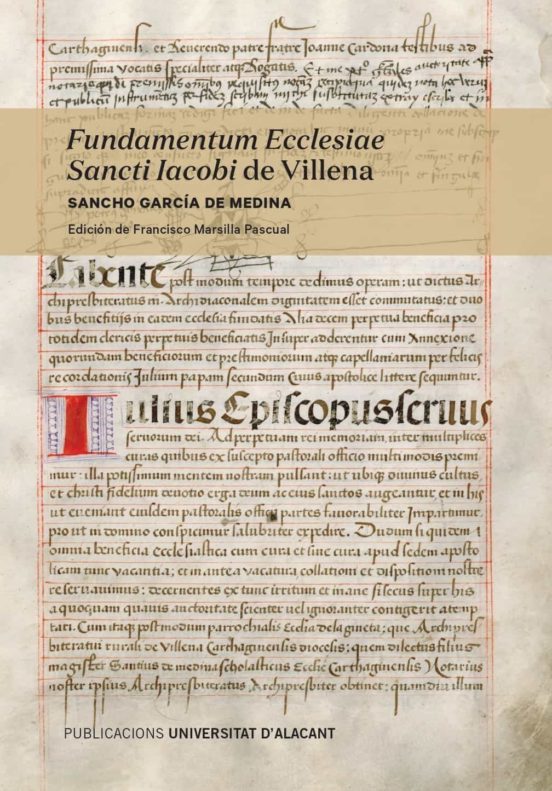 Carthaginensis. et Reverendo patre fratre Joanne Cardona testibus ad
premissima vocatis specialiter atqz Rogatis.
Fundamentum Ecclesiae
Sancti Iacobi de Villena
SANCHO GARCÍA DE MEDINA
Edición de Francisco Marsilla Pascual
Labente post modum tempore dedimus operam: ut dictus Ar-
chipresbiteratus in Archidiaconalem dignitatem esset commutatus: et duo
bus benefitijs in eadem ecclesia fundatis Alia decem perpetua beneficia pro
totidem clericis perpetuis beneficiatis Insuper adderentur cum Annexione
quorundam beneficiorum et prestimoniorum atqz capellaniarum per felicis
recordationis Iulium papam secundum Cuius apostolice littere sequuntur.
Iulius Episcopus servus
servorum dei. Ad perpetuam rei memoriam. inter multiplices
curas quibus ex suscepto pastorali officio multimodis premi
mur: illa potissimum mentem nostram pulsant: ut ubiqz divinus cultus
et christi fidelium devotio erga deum ac eius sanctos augeantur, et in his
ut eveniant eiusdem pastoralis officij partes favorabiliter Impartimur.
prout in domino conspicimus salubriter expedire. Dudum siquidem
omnia beneficia ecclesiastica cum cura et sine cura apud sedem aposto
licam tunc vacantia; et in antea vacatura, collationi et dispositioni nostre
reservavimus: decernentes ex tunc irritum et inane si secus super his
a quoquam quavis auctoritate scienter vel ignoranter contigerit atemp
tari. Cum itaqz postmodum parrochialis Ecclesia de la gineta; que Archipres
biteratui rurali de Villena Carthaginensis diocesis; quem dilectus filius
magister Santius de medina scholasticus Ecclesie Carthaginensis Notarius
noster ipsius Archipresbiteratus Archipresbiter obtinet; quamdiu illum
PUBLICACIONS UNIVERSITAT D'ALACANT